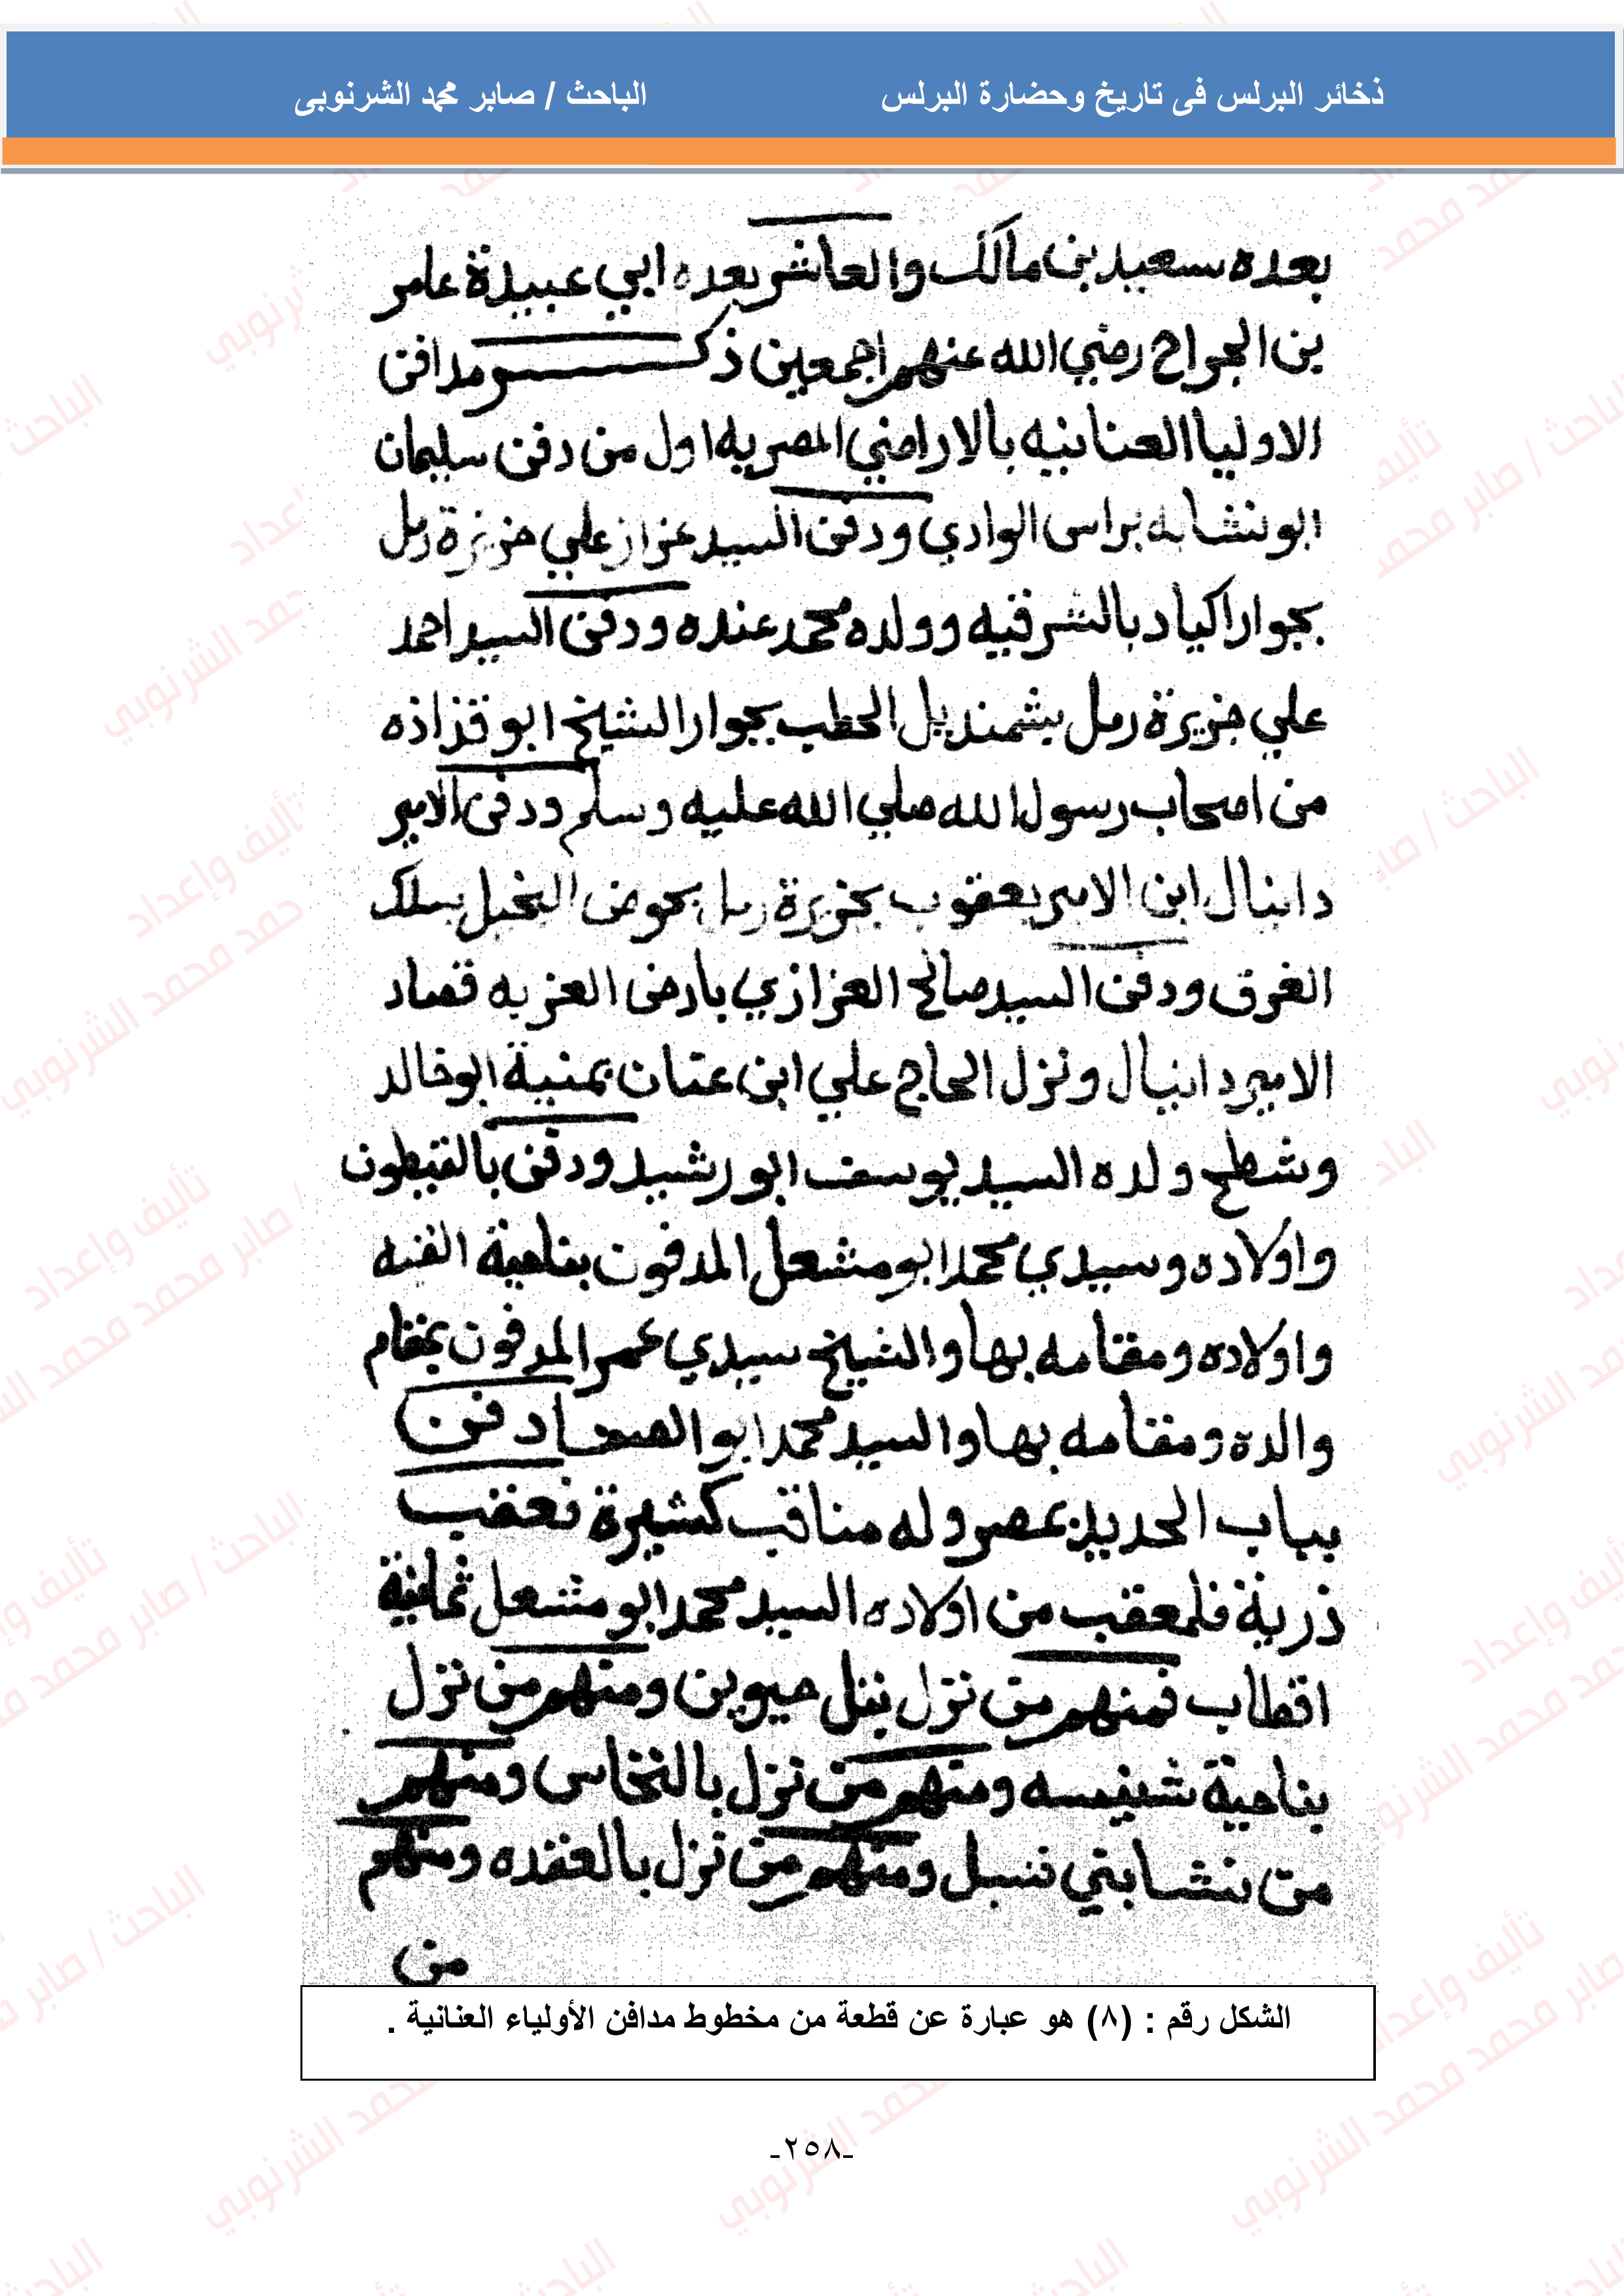 ذخائر البرلس فى تاريخ وحضارة البرلس الباحث / صابر محمد الشرنوبى
بعده سعيد بن مالك والعاشر بعده ابي عبيدة عامر
بن الجراح رضي الله عنهم اجمعين ذكر مدافن
الاوليا العنانيه بالاراضي المصريه اول من دفن سليمان
ابو نشابه براس الوادي ودفن السيد عزاز علي جزيرة رمل
بجوار اكياد بالشرقيه وولده محمد عنده ودفن السيد احمد
علي جزيرة رمل بشمنديل الحطب بجوار الشيخ ابو قزازه
من اصحاب رسول الله صلي الله عليه وسلم ودفن الامير
دانيال ابن الامير يعقوب بجزيرة رمل بحوض النخيل بسلك
الغرق ودفن السيد صالح العزازي بارض العزبه قصاد
الامير دانيال ونزل الحاج علي ابن عتان بمنية ابو خالد
وشطح ولده السيد يوسف ابو رشيد ودفن بالقيطون
واولاده وسيدي محمد ابو مشعل المدفون بناحية الفنيه
واولاده ومقامه بها والشيخ سيدي عمر المدفون بمقام
والده ومقامه بها والسيد محمد ابو العصا دفن
بباب الحديد بمصر وله مناقب كثيرة نعقب
ذرية فلمعقب من اولاده السيد محمد ابو مشعل ثمانية
اقطاب فمنهم من نزل بتل حيوين ومنهم من نزل
بناحية شنيفسه ومنهم من نزل بالنخاس ومنهم
من بنشا بني نسبل ومنهم من نزل بالعقده ومنهم
من
الشكل رقم : (٨) هو عبارة عن قطعة من مخطوط مدافن الأولياء العنانية .
-٢٥٨-